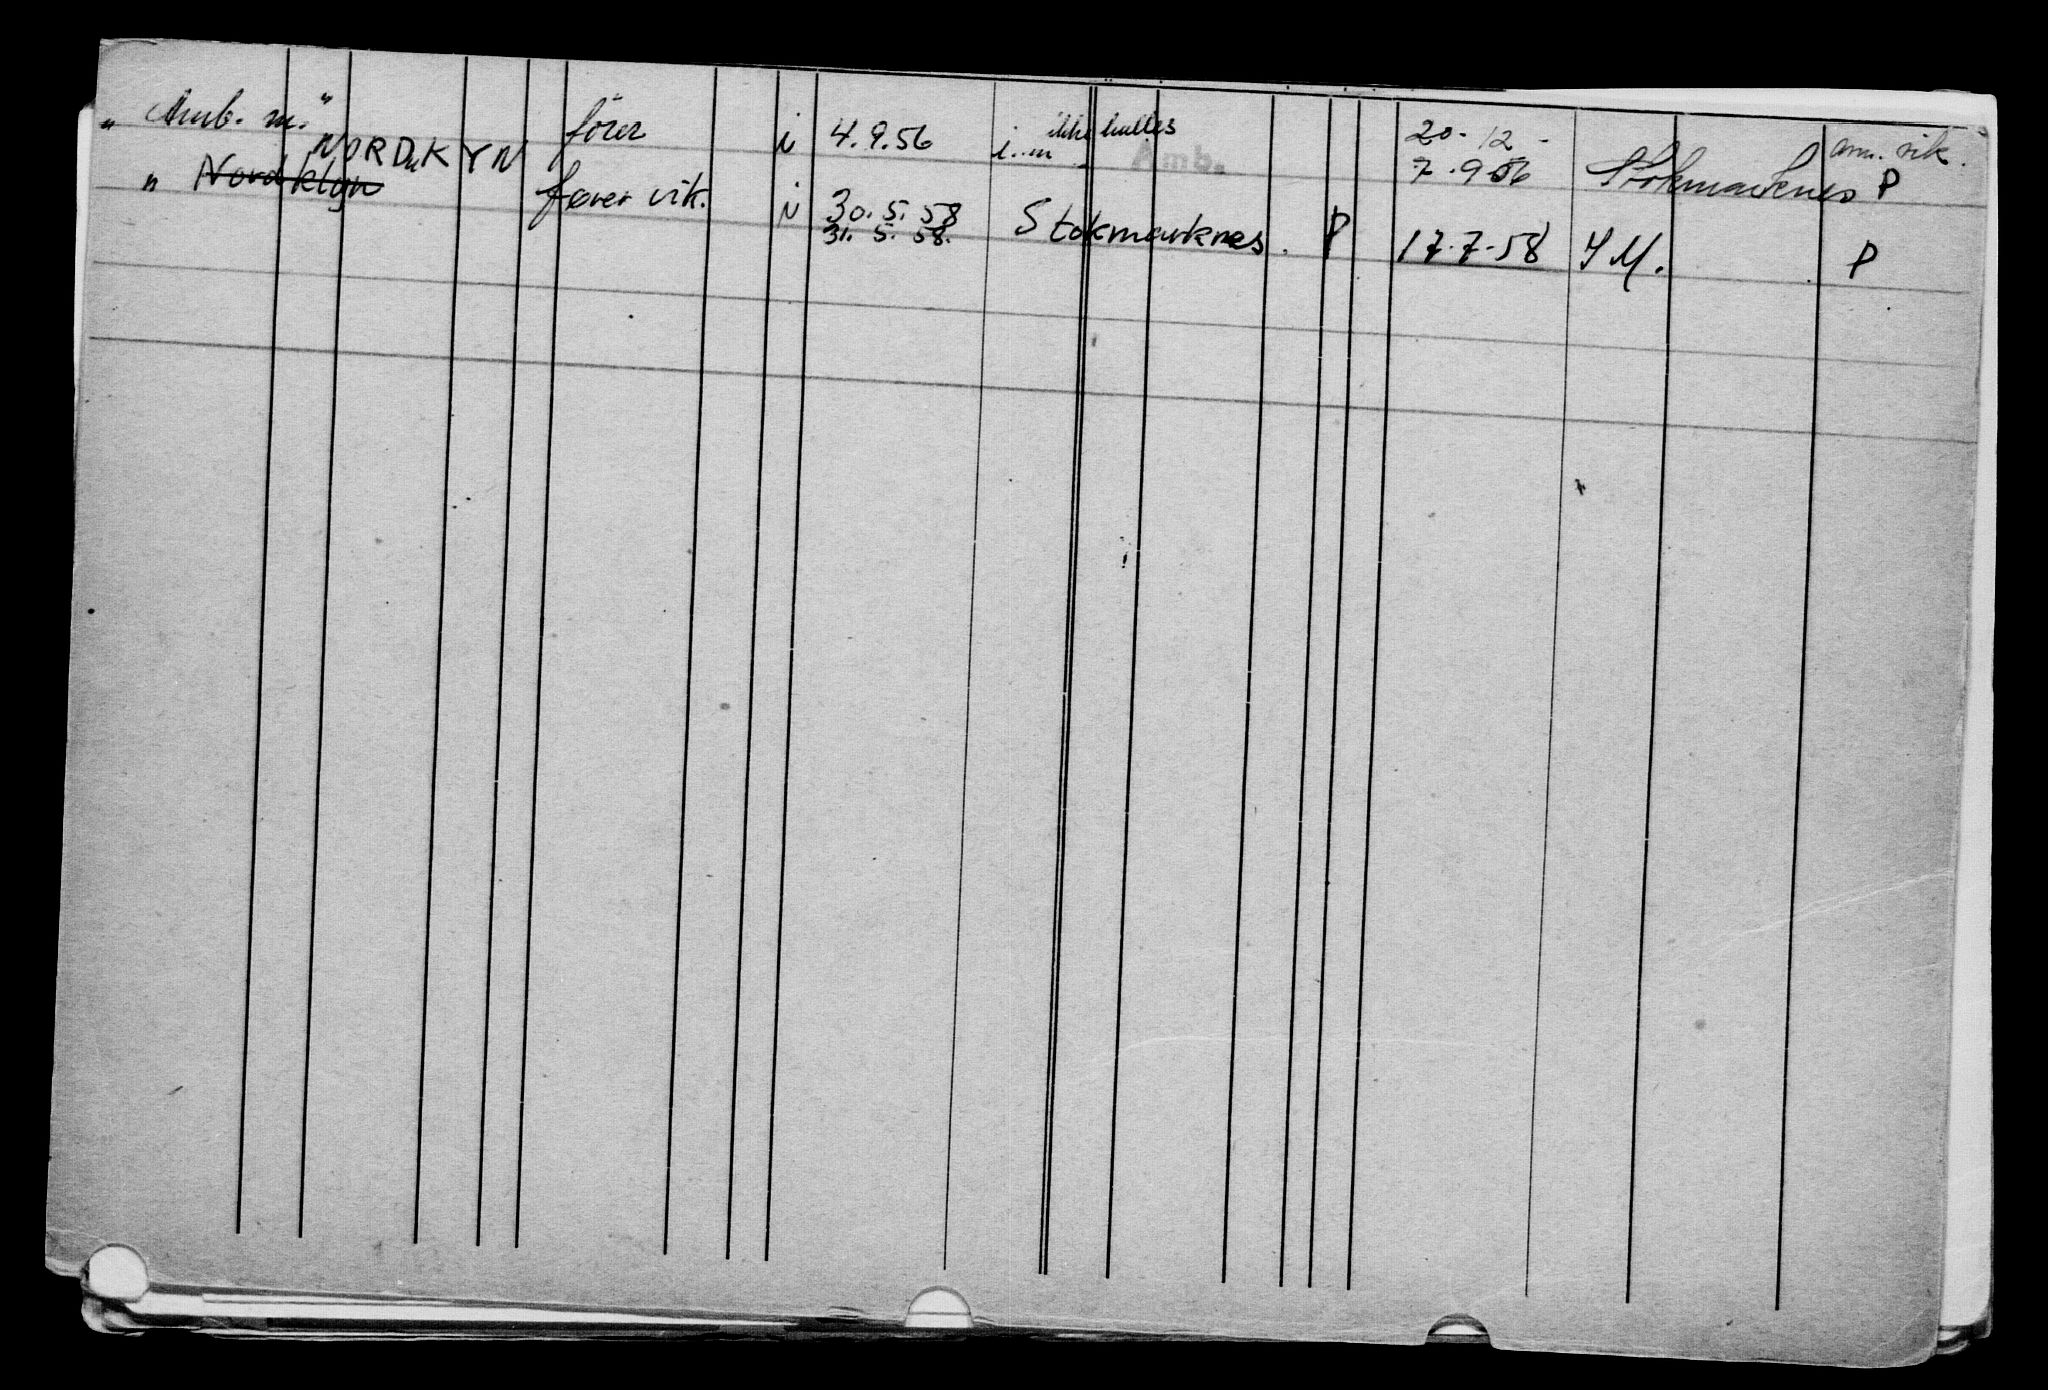 " Amb. m." förer i 4.9.56 ikke hulles Amb. 20.12. ann. vik.
NORDKYN 7.9.56 Stokmarknes P
" Nordklyn fører vik. i 30.5.58
31.5.58. Stokmarknes. P 17.7.58 S M. P